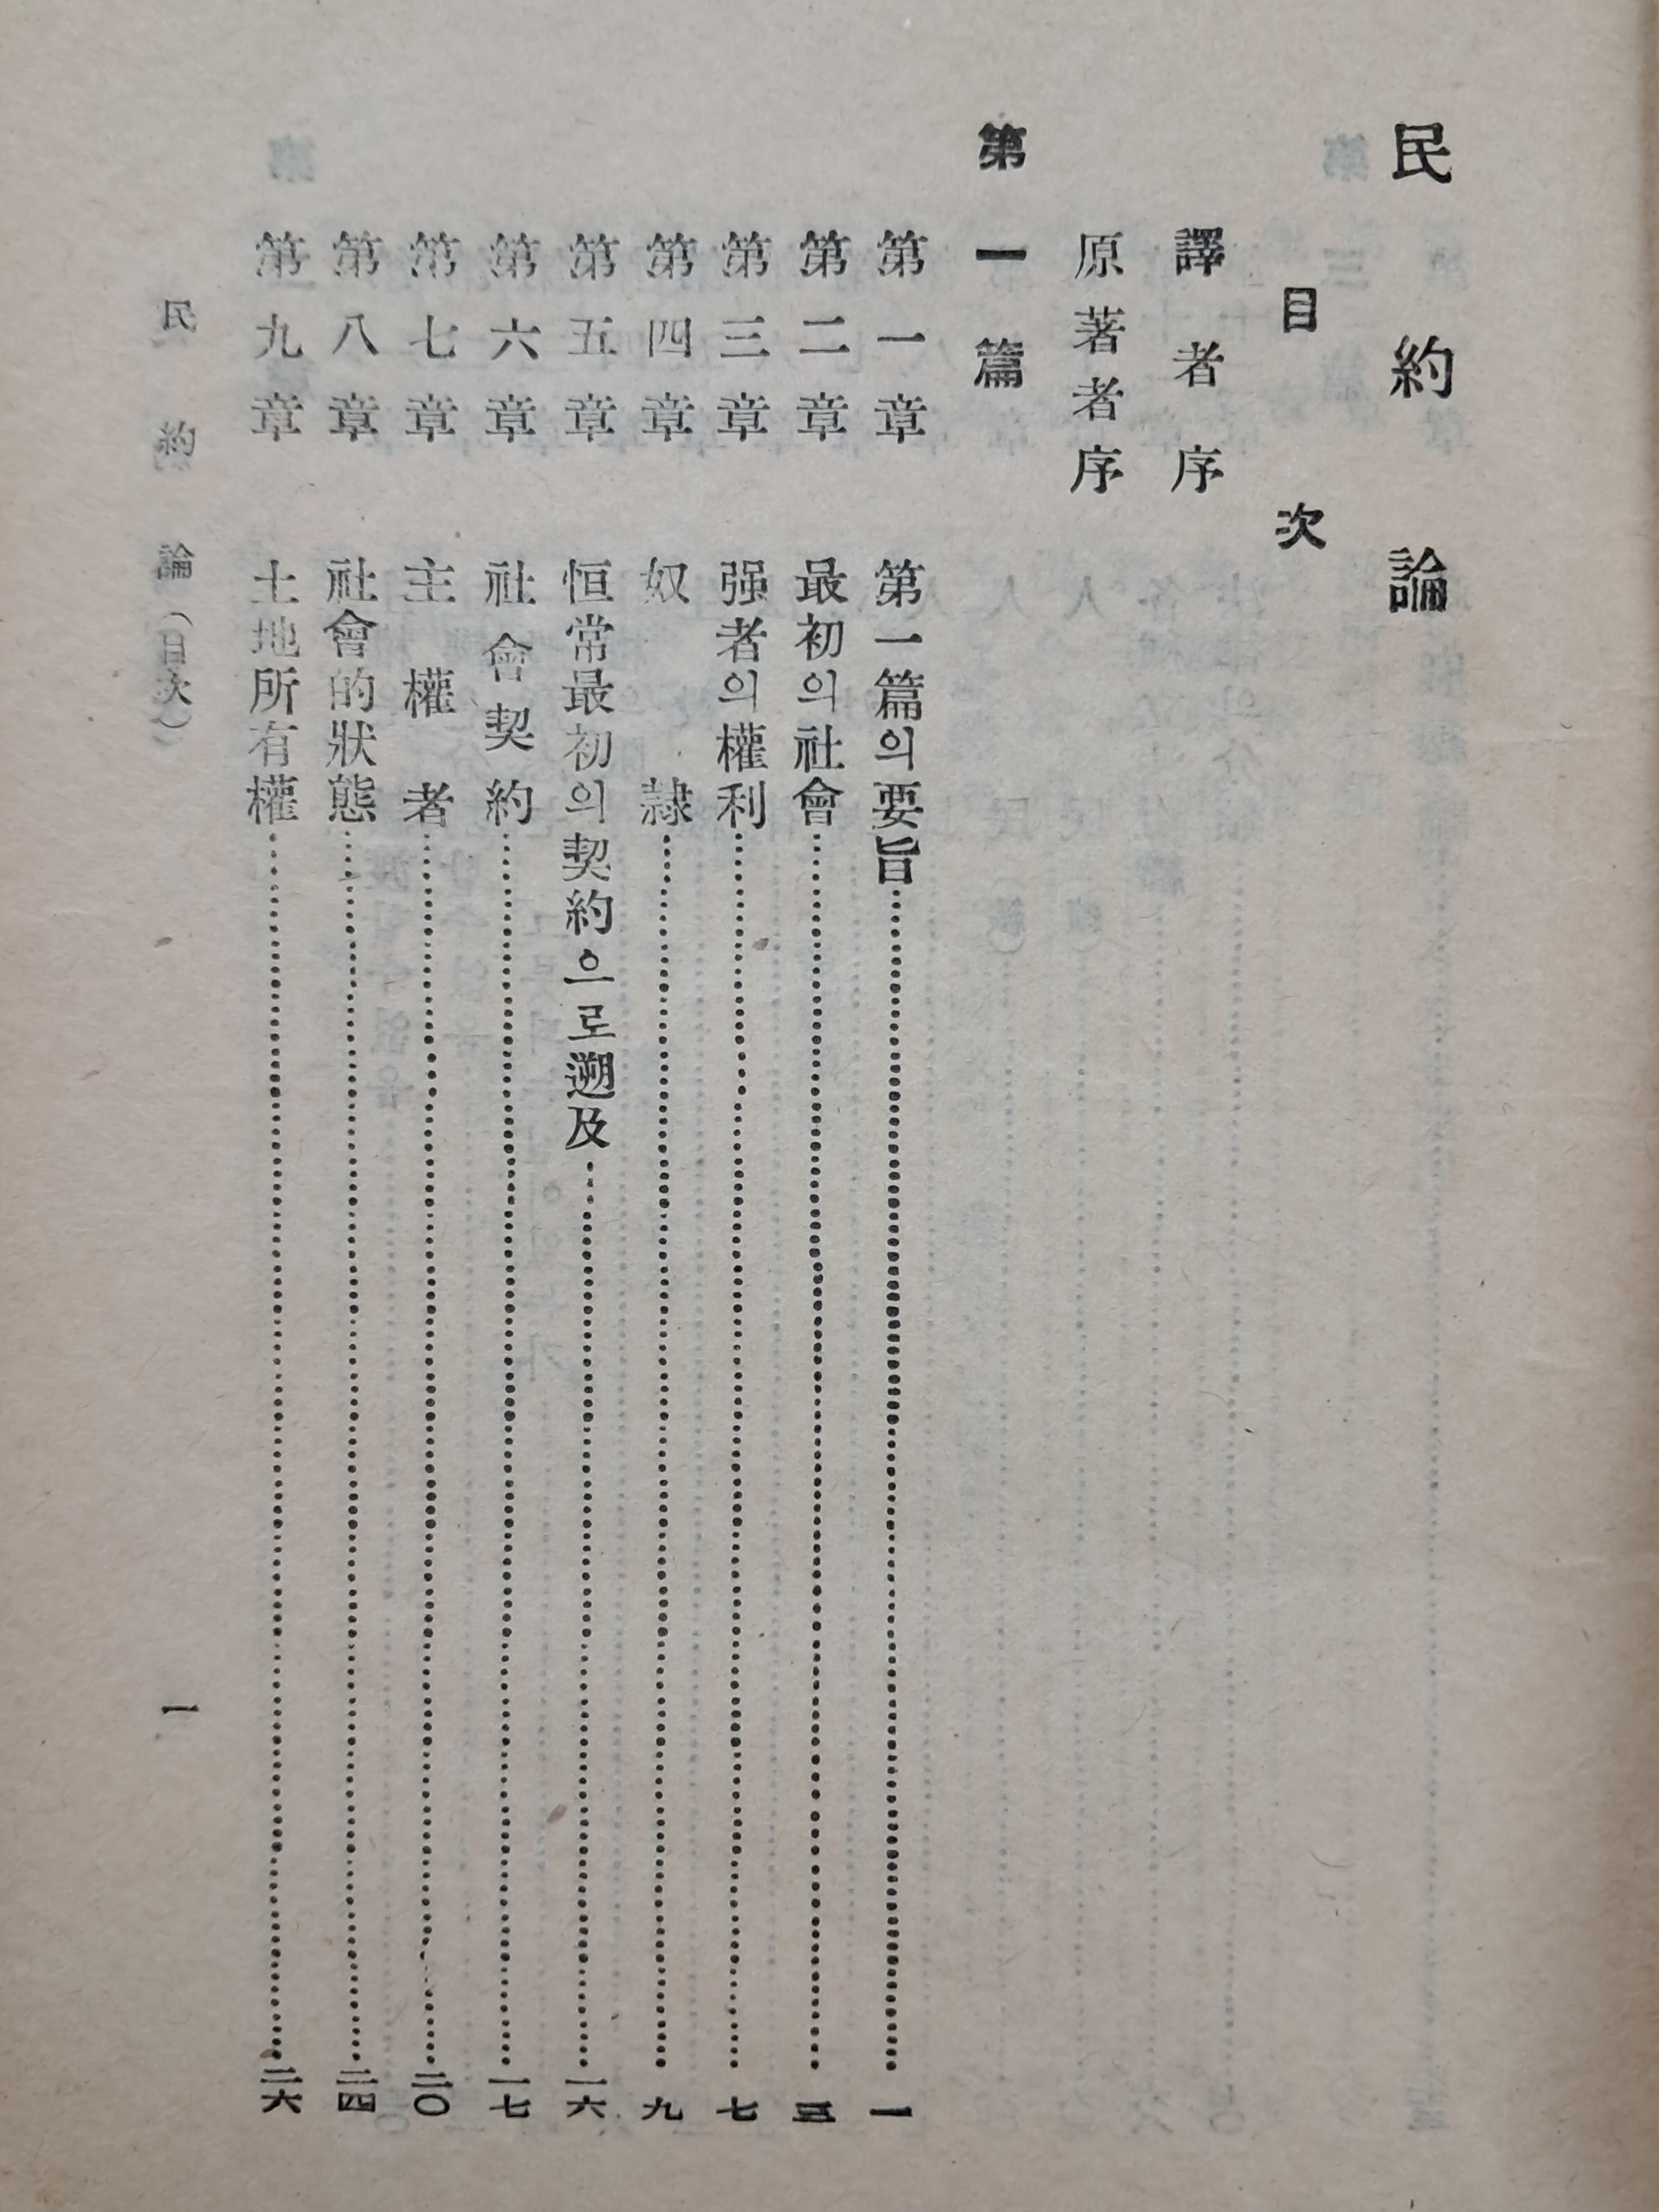 民約論
目次
譯者序
原著者序
第一篇
第一章 第一篇의要旨……一
第二章 最初의社會……三
第三章 强者의權利……七
第四章 奴隷……九
第五章 恒常最初의契約으로遡及……一六
第六章 社會契約……一七
第七章 主權者……二〇
第八章 社會的狀態……二四
第九章 土地所有權……二六
民約論(目次) 一